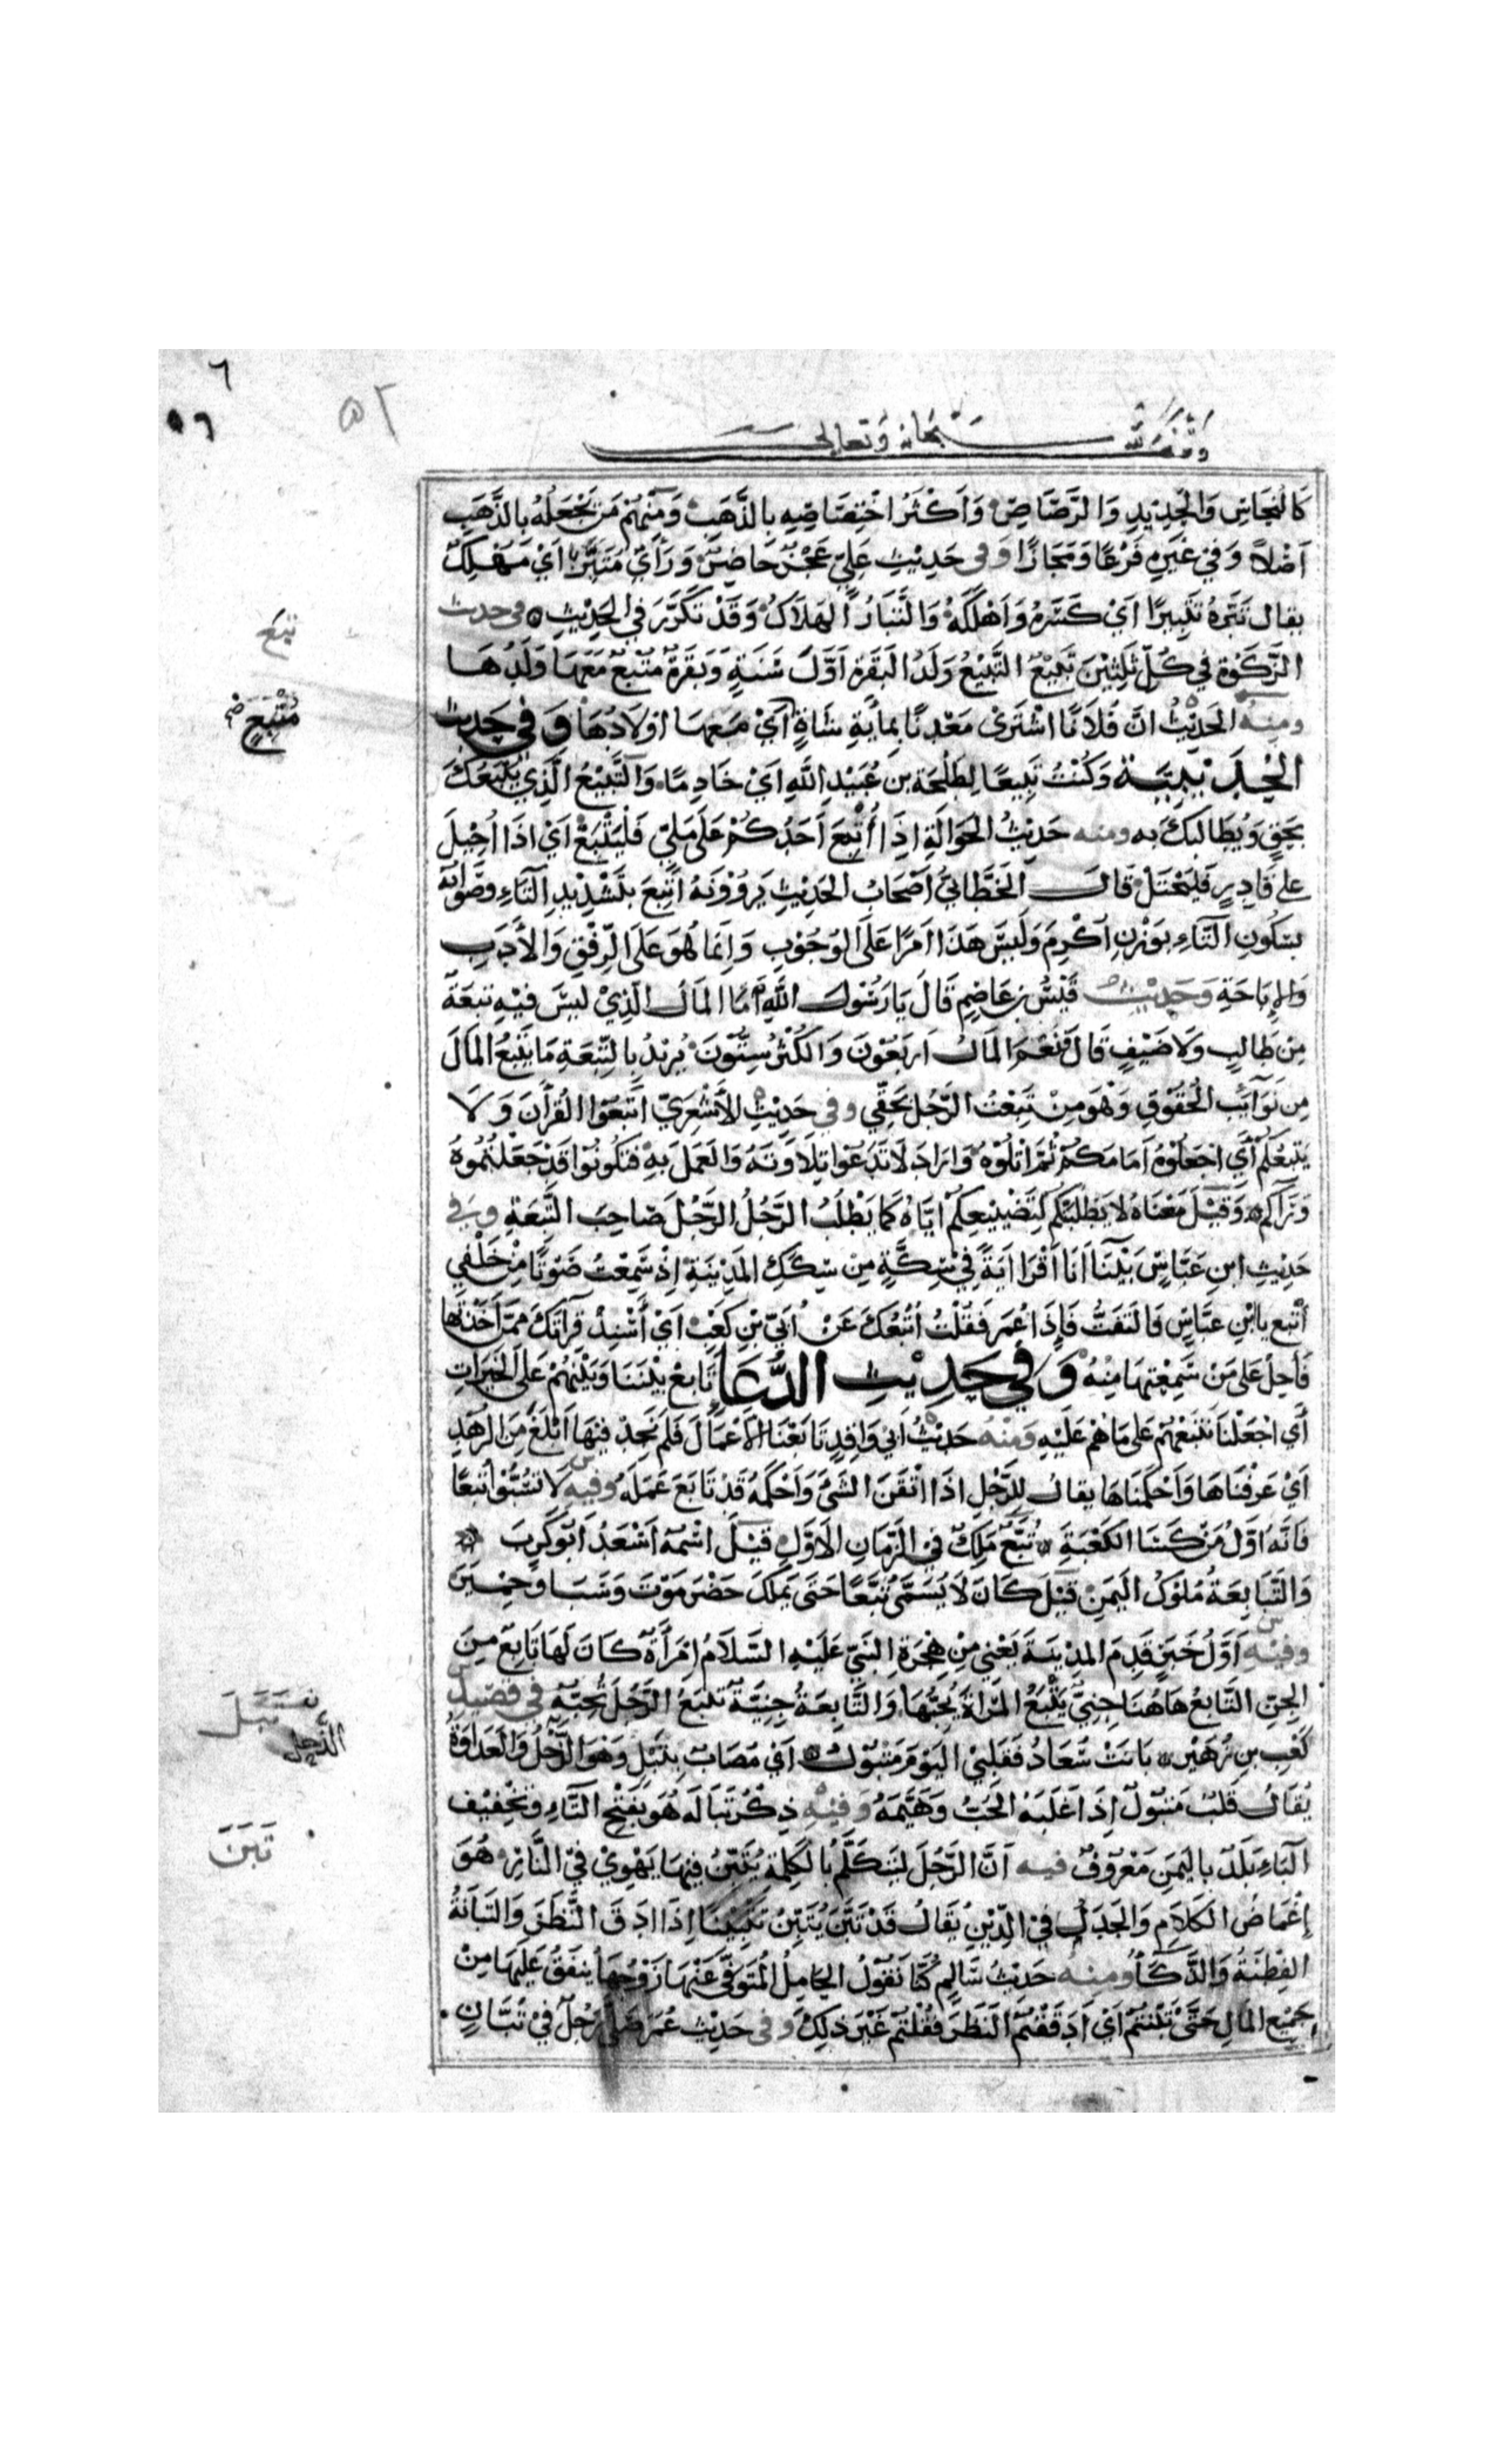 ٦
٥٦
٥٢
وقف لله سبحانه وتعالى
كَالنُّحَاسِ وَالْحَدِيْدِ وَالرَّصَاصِ وَاَكْثَرُ اخْتِصَاصِهِ بِالذَّهَبِ وَمِنْهُمْ مَن يَجْعَلُهُ بِالذَّهَبِ
اَصْلاً وَفِيْ غَيْرِهِ فَرْعًا وَمَجَازًا وفى حَدِيْثِ عَلِيٍّ عَجْزٌ حَاضِرٌ وَرَأْيٌ مُتَبَّرٌ اَيْ مَهْلَكٌ
يقال تَبَّرَهُ تَتْبِيرًا اَيْ كَسَّرَهُ وَاَهْلَكَهُ وَالتَّبَارُ الهَلَاكُ وَقَدْ تَكَرَّرَ فِي الحَدِيْثِ وفى حديث
الزَّكٰوةِ فِي كُلِّ ثَلٰثِيْنَ تَبِيْعٌ التَّبِيْعُ وَلَدُ البَقَرَةِ اَوَّلَ سَنَةٍ وَبَقَرَةٌ مُتْبِعٌ مَعَهَا وَلَدُهَا
ومنه الحَدِيْثُ اَنَّ فُلَانًا اشْتَرٰى مَعْدِنًا بِمِأيَةِ شَاةٍ اَيْ مَعَهَا اَوْلَادُهَا وَفِي حَدِيْثِ
الحُدَيْبِيَّة وَكُنْتُ تَبِيعًا لِطَلْحَةَ بن عُبَيْدِ اللّٰهِ اَيْ خَادِمًا وَالتَّبِيْعُ الَّذِي يَتْبَعُكَ
بِحَقٍّ وَيُطَالِبُكَ بِه ومنه حَدِيْثُ الحَوَالَةِ اِذَا اُتْبِعَ اَحَدُكُمْ عَلَى مَلِيٍّ فَلْيَتْبَعْ اَيْ اِذَا اُحِيْلَ
على قَادِرٍ فَلْيَحْتَلْ قَالَ الخَطَّابِيُّ اَصْحَابُ الحَدِيْثِ يَرْوُوْنَهُ اتَّبِعَ بِتَشْدِيْدِ التَّاءِ وصَوَابُهُ
بسُكُونِ التَّاءِ بِوَزْنِ اُكْرِمَ وَلَيْسَ هَذَا اَمْرًا عَلَى الوُجُوْبِ وَاِنَّمَا هُوَ عَلَى الرِّفْقِ وَالاَدَبِ
وَالاِبَاحَةِ وَحَدِيْثُ قَيْسِ بْنِ عَاصِمٍ قَالَ يَا رَسُوْلَ اللّٰهِ مَا المَالُ الَّذِيْ لَيْسَ فِيْهِ تَبِعَةٌ
مِن طَالِبٍ وَلَا ضَيْفٍ قَالَ نِعْمَ المَالُ اَرْبَعُوْنَ وَالكُثْرُ سِتُّوْنَ يُرِيْدُ بِالتَّبِعَةِ مَا يَتْبَعُ المَالَ
مِن نَوَائِبِ الحُقُوْقِ وَهْوَ مِنْ تَبِعْتُ الرَّجُلَ بِحَقِّي وفي حَدِيْثِ الاَشْعَرِيِّ اتَّبِعُوْا القُرْآنَ وَلَا
يَتْبَعُكُمْ اَي اجْعَلُوْهُ اَمَامَكُمْ ثُمَّ اتْلُوْهُ وَاَرَادَ لَا تَدَعُوْا تِلَاوَتَهُ وَالعَمَلَ بِهِ فَتَكُونُوْا قَدْ جَعَلْتُمُوْهُ
وَرَاءَكُمْ وَقِيْلَ مَعْنَاهُ لَا يَطْلُبَنَّكُمْ لِتَضْيِيْعِكُمْ اِيَّاهُ كَمَا يَطْلُبُ الرَّجُلُ الرَّجُلَ صَاحِبَ التَّبِعَةِ وفي
حَدِيْثِ ابْنِ عَبَّاسٍ بَيْنَا اَنَا اَقْرَا اٰيَةً فِيْ سِكَّةٍ مِن سِكَكِ المَدِيْنَةِ اِذْ سَمِعْتُ صَوْتًا مِنْ خَلْفِي
اَتْبِع يابْنَ عَبَّاسٍ فَالْتَفَتُّ فَاِذَا عُمَرُ فَقُلْتُ اُتْبِعُكَ عَنْ اُبَيِّ بْنِ كَعْبٍ اَيْ اَسْنِدْ قِرَاتَكَ مِمَّنْ اَخَذْتَهَا
فَاَحِلْ عَلَى مَنْ سَمِعْتَهَا مِنْهُ وَفِي حَدِيْثِ الدُّعَا تَابِعْ بَيْنَنَا وَبَيْنَهُمْ عَلَى الخَيْرَاتِ
أَي اجْعَلْنَا نَتَّبِعُهُمْ عَلَى مَا هُمْ عَلَيْهِ وَمِنْهُ حَدِيْثُ اَبِي وَاقِدٍ تَابَعْنَا الاَعْمَالَ فَلَمْ نَجِدْ فِيْهَا اَبْلَغَ مِنَ الزُّهْدِ
اَيْ عَرَفْنَاهَا وَاَحْكَمْنَاهَا يقال لِلرَّجُلِ اِذَا اَتْقَنَ الشَّيْءَ وَاَحْكَمَهُ قَدْ تَابَعَ عَمَلَهُ وفيه لَا تَسُبُّوْا تُبَّعًا
فَاِنَّهُ اَوَّلُ مَنْ كَسَا الكَعْبَةَ تُبَّعٌ مَلِكٌ فِي الزَّمَانِ الاَوَّلِ قِيْلَ اسْمُهُ اَسْعَدُ اَبُوْ كَرِبَ
وَالتَّبَابِعَةُ مُلُوْكُ اليَمَنِ قِيْلَ كَانَ لَا يُسَمَّى تُبَّعًا حَتَّى يَمْلِكَ حَضْرَمَوْتَ وَسَبَا وَحِمْيَرَ
وفيه اَوَّلُ خَبَرٍ قَدِمَ المَدِيْنَةَ يَعْنِي مِنْ هِجْرَةِ النَّبِيِّ عَلَيْهِ السَّلَامُ اِمْرَأَةٌ كَانَ لَهَا تَابِعٌ مِنَ
الجِنِّ التَّابِعُ هَاهُنَا جِنِيٌّ يَتْبَعُ المَرْاَةَ يُحِبُّهَا وَالتَّابِعَةُ جِنِيَّةٌ تَتْبَعُ الرَّجُلَ تُحِبُّهُ في قصيد
كَعْبِ بن زُهَيْر بَانَتْ سُعَادُ فَقَلْبِيْ اليَوْمَ مَتْبُوْلٌ اَيْ مُصَابٌ بِتَبْلٍ وَهْوَ الذَّحْلُ وَالعَدَاوَةُ
يُقَالُ قَلْبٌ مَتْبُوْلٌ اِذَا غَلَبَهُ الحُبُّ وَهَيَّمَهُ وَفِيْهِ ذِكْرُ تَبَالَه هُوَ بِفَتْحِ التَّاءِ وَتَخْفِيْفِ
البَاءِ بَلَدٌ بِاليَمَنِ مَعْرُوْفٌ فيه اَنَّ الرَّجُلَ لَيَتَكَلَّمُ بِالكَلِمَةِ يُتَبِّنُ فِيْهَا يَهْوِيْ فِيْ النَّارِ هُوَ
اِغْمَاضُ الكَلَامِ وَالجَدَلُ فِيْ الدِّيْنِ يُقَالُ قَدْ تَبَّنَ يُتَبِّنُ تَتْبِيْنًا اِذَا اَدَقَّ النَّظَرَ وَالتَّبَانَةُ
الفِطْنَةُ وَالذَّكَاءُ ومنه حَدِيْثُ سَالِمٍ كُنَّا نَقُوْلُ الحَامِلُ المُتَوَفّٰى عَنْهَا زَوْجُهَا يُنْفَقُ عَلَيْهَا مِنْ
جَمِيْعِ المَالِ حَتَّى تَبَّنْتُمْ اَيْ اَدْقَقْتُمُ النَّظَرَ فَقُلْتُمْ غَيْرَ ذَلِكَ وفى حَدِيْثِ عُمَرَ صَلَّى رَجُلٌ فِيْ تُبَّانٍ
تبع
مُتْبِعٍ
تَبَلَ
الذحل
تَبَنَ